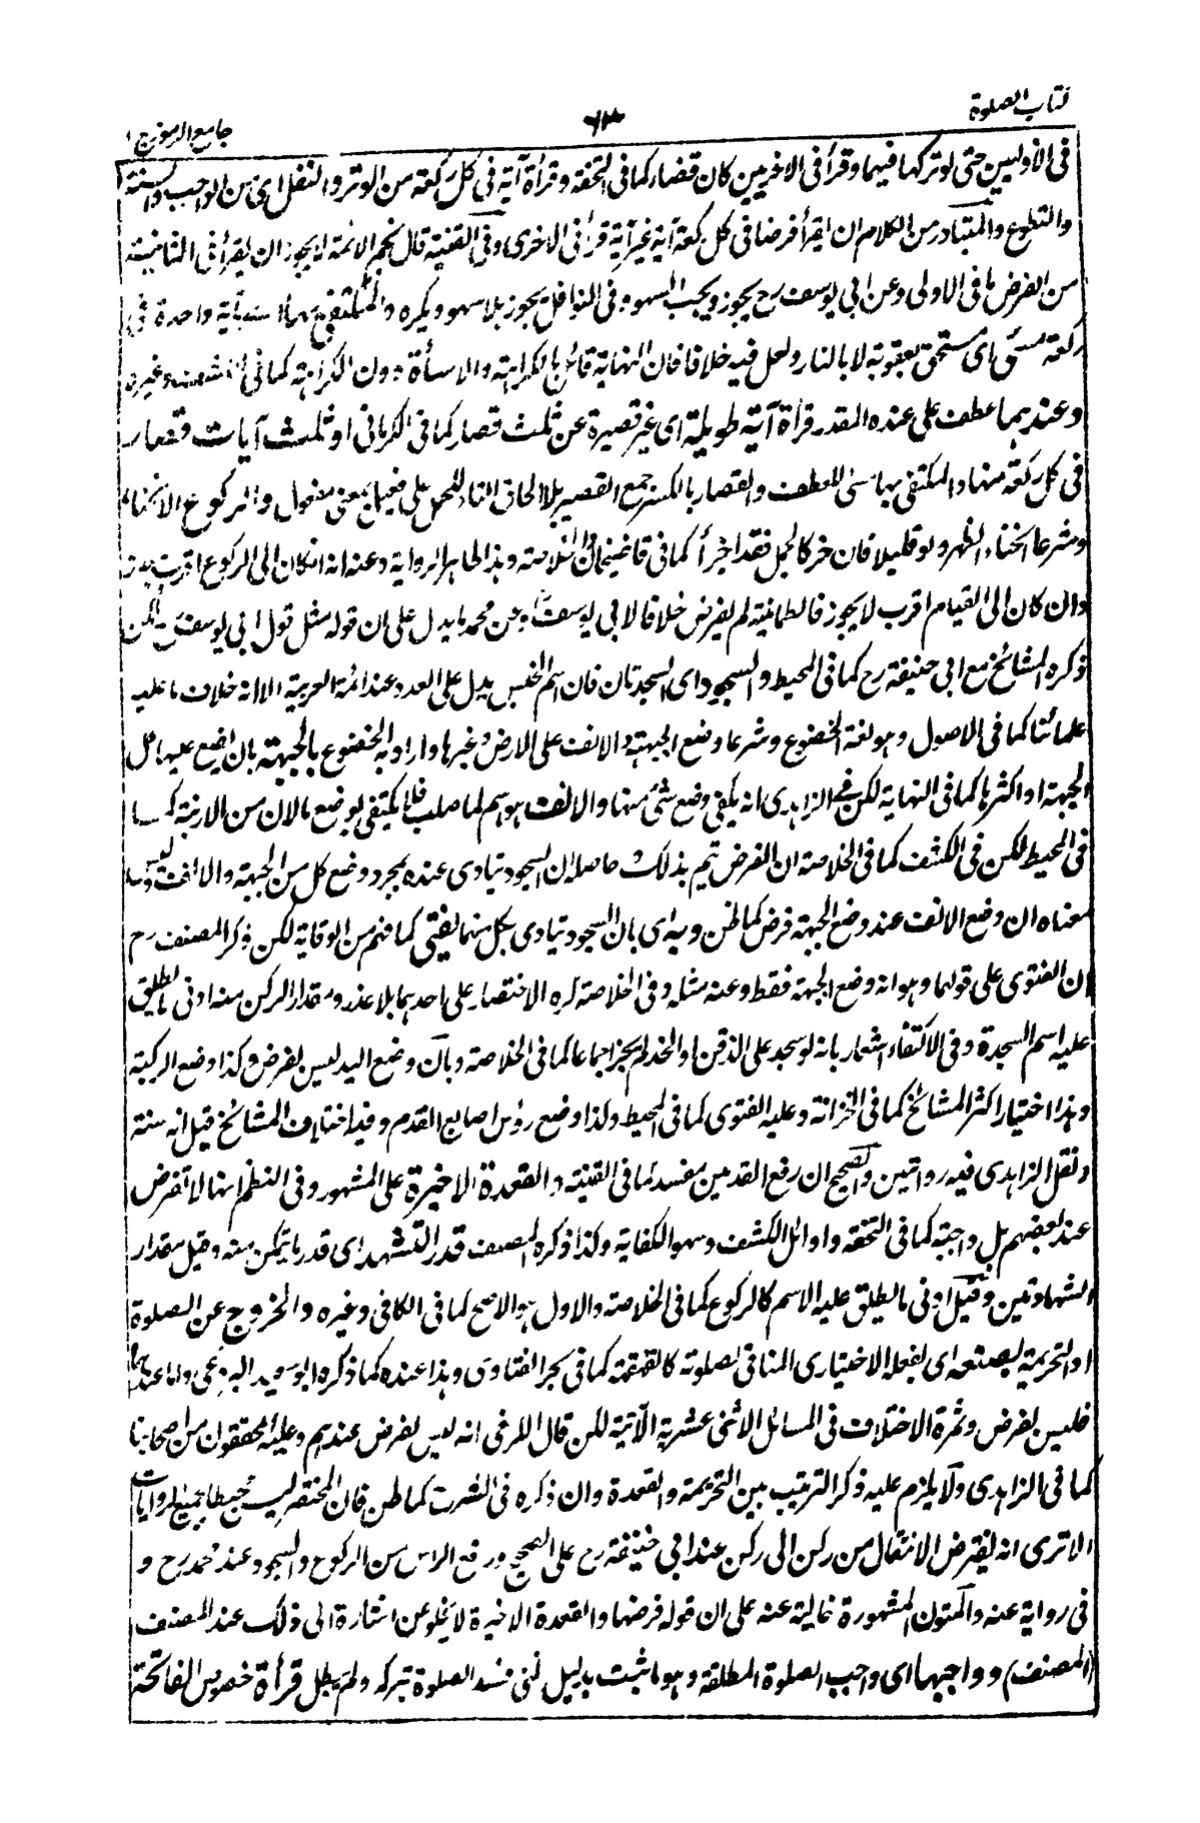 كتاب الصلوة
٦٣
جامع الرموز ج ١
فى الأوليين حتى لو تركها فيهما وقرأ فى الاخريين كان قضاء كما فى التحفة وقرأة آية فى كل ركعة من الوتر والنفل اى من الواجب والسنة
والتطوع والمتبادر من الكلام ان يقرأ فرضا فى كل ركعة آية غير آية قرأ فى الاخرى وفى القنية قال نجم الائمة لا يجوز ان يقرأ فى الثانية
من الفرض ما فى الاولى وعن ابى يوسف رح يجوز ويجب السهو وفى النوافل يجوز بلا سهو ويكره والمكتفى بها اى بآية واحدة فى
ركعة مسئى اى مستحق بعقوبة لا بالنار ولعل فيه خلافا فان النهاية قائل بالكراهة والاسأة دون الكراهة كما فى الكشف وغيره
وعندهما عطف على عنده المقدر قرأة آية طويلة اى غير قصيرة عن ثلث قصار كما فى الكرمانى او ثلث آيات قصار
فى كل ركعة منها والمكتفى بها مسئى للعطف والقصار بالكسر جمع القصير بلا الحاق التاء للحمل على فعيل بمعنى مفعول والركوع الانحناء
وشرعا انحناء الظهر ولو قليلا فان خر كالجمل فقد اجزأ كما فى قاضيخان الخلاصة وهذا ظاهر الرواية وعنه انه ان كان الى الركوع اقرب يجوز
وان كان الى القيام اقرب لا يجوز فالطمانية لم يفرض خلافا لابى يوسف وعن محمد ما يدل على ان قوله مثل قول ابى يوسف لكن
ذكره المشائخ مع ابى حنيفة رح كما فى المحيط والسجود اى السجدتان فان اسم الجنس يدل على العدد عند ائمة العربية الا انه خلاف ما عليه
علمائنا كما فى الاصول وهو لغة الخضوع وشرعا وضع الجبهة والانف على الارض وغيرها واراد به الخضوع بالجبهة بان يضع عليها كل
الجبهة او اكثرها كما فى النهاية لكن فى الزاهدى انه يكفى وضع شئ منها والانف هو اسم لما صلب فلا يكتفى بوضع مالان من الارنبة كما
فى المحيط لكن فى الكشف كما فى الخلاصة ان الفرض يتم بذلك حاصله ان السجود يتادى عنده بمجرد وضع كل من الجبهة والانف وليس
معناه ان وضع الانف عند وضع الجبهة فرض كما ظن وبه اى بان السجود يتادى بكل منهما يفتى كما فهم من الوقاية لكن ذكر المصنف رح
ان الفتوى على قولهما وهو انه وضع الجبهة فقط وعنه مثله وفى الخلاصة كره الاختصار على احدهما بلا عذر ومقدار الركن منه ادنى ما يطلق
عليه اسم السجدة وفى الاكتفاء اشعار بانه لو سجد على الذقن او الخد لم يجز اجماعا كما فى الخلاصة وبان وضع اليد ليس بفرض وكذا وضع الركبة
وهذا اختيار اكثر المشائخ كما فى الخزانة وعليه الفتوى كما فى المحيط وكذا وضع رؤس اصابع القدم وفيه اختلاف المشائخ قيل انه سنة
ونقل الزاهدى فيه روايتين والصحيح ان رفع القدمين مفسد كما فى القنية والقعدة الاخيرة على المشهور وفى النظم انها لا تفرض
عند بعضهم بل واجبة كما فى التحفه واوائل الكشف وسهو الكفاية وكذا ذكره المصنف قدر التشهد اى قدر ما يتمكن منه وقيل مقدار
الشهادتين وقيل ادنى ما يطلق عليه الاسم كالركوع كما فى الخلاصة والاول هو الاصح كما فى الكافى وغيره والخروج عن الصلوة
او التحريمة بصنعه اى بفعله الاختيارى المنافى لصلوته كالقهقهة كما فى بحر الفتاوى وهذا عنده كما ذكره ابو سعيد البردعى واما عندهما
فليس بفرض وثمرة الاختلاف فى المسائل الاثنى عشرية الآتية لكن قال الكرخى انه ليس بفرض عندهم وعليه محققون من اصحابنا
كما فى الزاهدى ولا يلزم عليه ذكر الترتيب بين التحريمة والقعدة وان ذكره فى الشرح كما ظن فان المختصر ليس محيطا بجميع الروايات
الا ترى انه يفترض الانتقال من ركن الى ركن عند ابى حنيفة رح على الصحيح ورفع الراس من الركوع والسجود عند محمد رح و
فى رواية عنه والمتون المشهورة خالية عنه على ان قوله فرضها والقعدة الاخيرة لا يخلو عن اشارة الى ذلك عند المصنف
(المصنف) وواجبها اى واجب الصلوة المطلقة وهو ما ثبت بدليل ظنى فسد الصلوة بتركه ولم يبطل قرأة خصوص الفاتحة